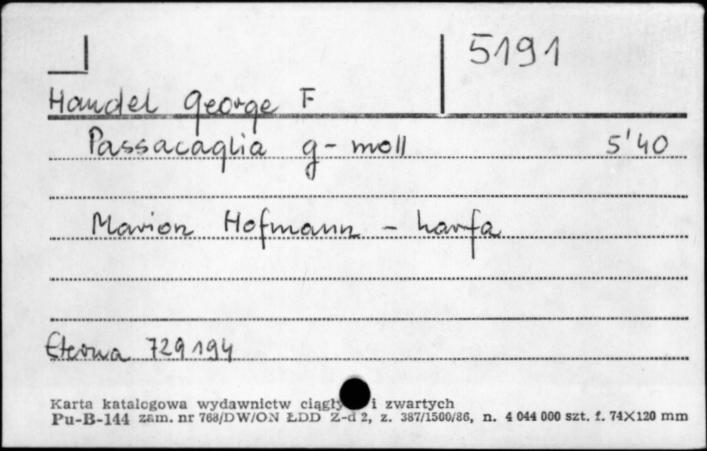 5191
Handel George F
Passacaglia g-moll 5'40
Marion Hofmann - harfa
Eterna 729194
Karta katalogowa wydawnictw i zwartych
Pu-B-144 zam. nr 768/DW/ON ŁDD Z-d 2, z. 387/1500/86, n. 4 044 000 szt. f. 74X120 mm